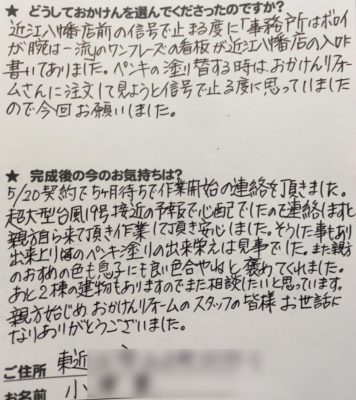 ★ どうしておかけんを選んでくださったのですか?
近江八幡店前の信号で止まる度に「事務所はボロイ
が腕は一流」のワンフレーズの看板が近江八幡店の入口に
書いてありました。ペンキの塗り替する時は、おかけんリフォー
ムさんに注文して見ようと信号で止る度に思っていました
ので今回お願いしました。
★ 完成後の今のお気持ちは?
5/20契約で5ヶ月待ちで作業開始の連絡を頂きました。
超大型台風19号接近の予報で心配でしたので連絡しますと
親方自ら来て頂き作業して頂き安心しました。そうした事もあり
出来上り後のペンキ塗りの出来栄えは見事でした。また親方
のおすすめの色も息子にも良い色合やねと褒めてくれました。
あと2棟の建物もありますのでまた相談したいと思っています。
親方始じめ、おかけんリフォームのスタッフの皆様お世話に
なりありがとうございました。
ご住所 東近
お名前 小